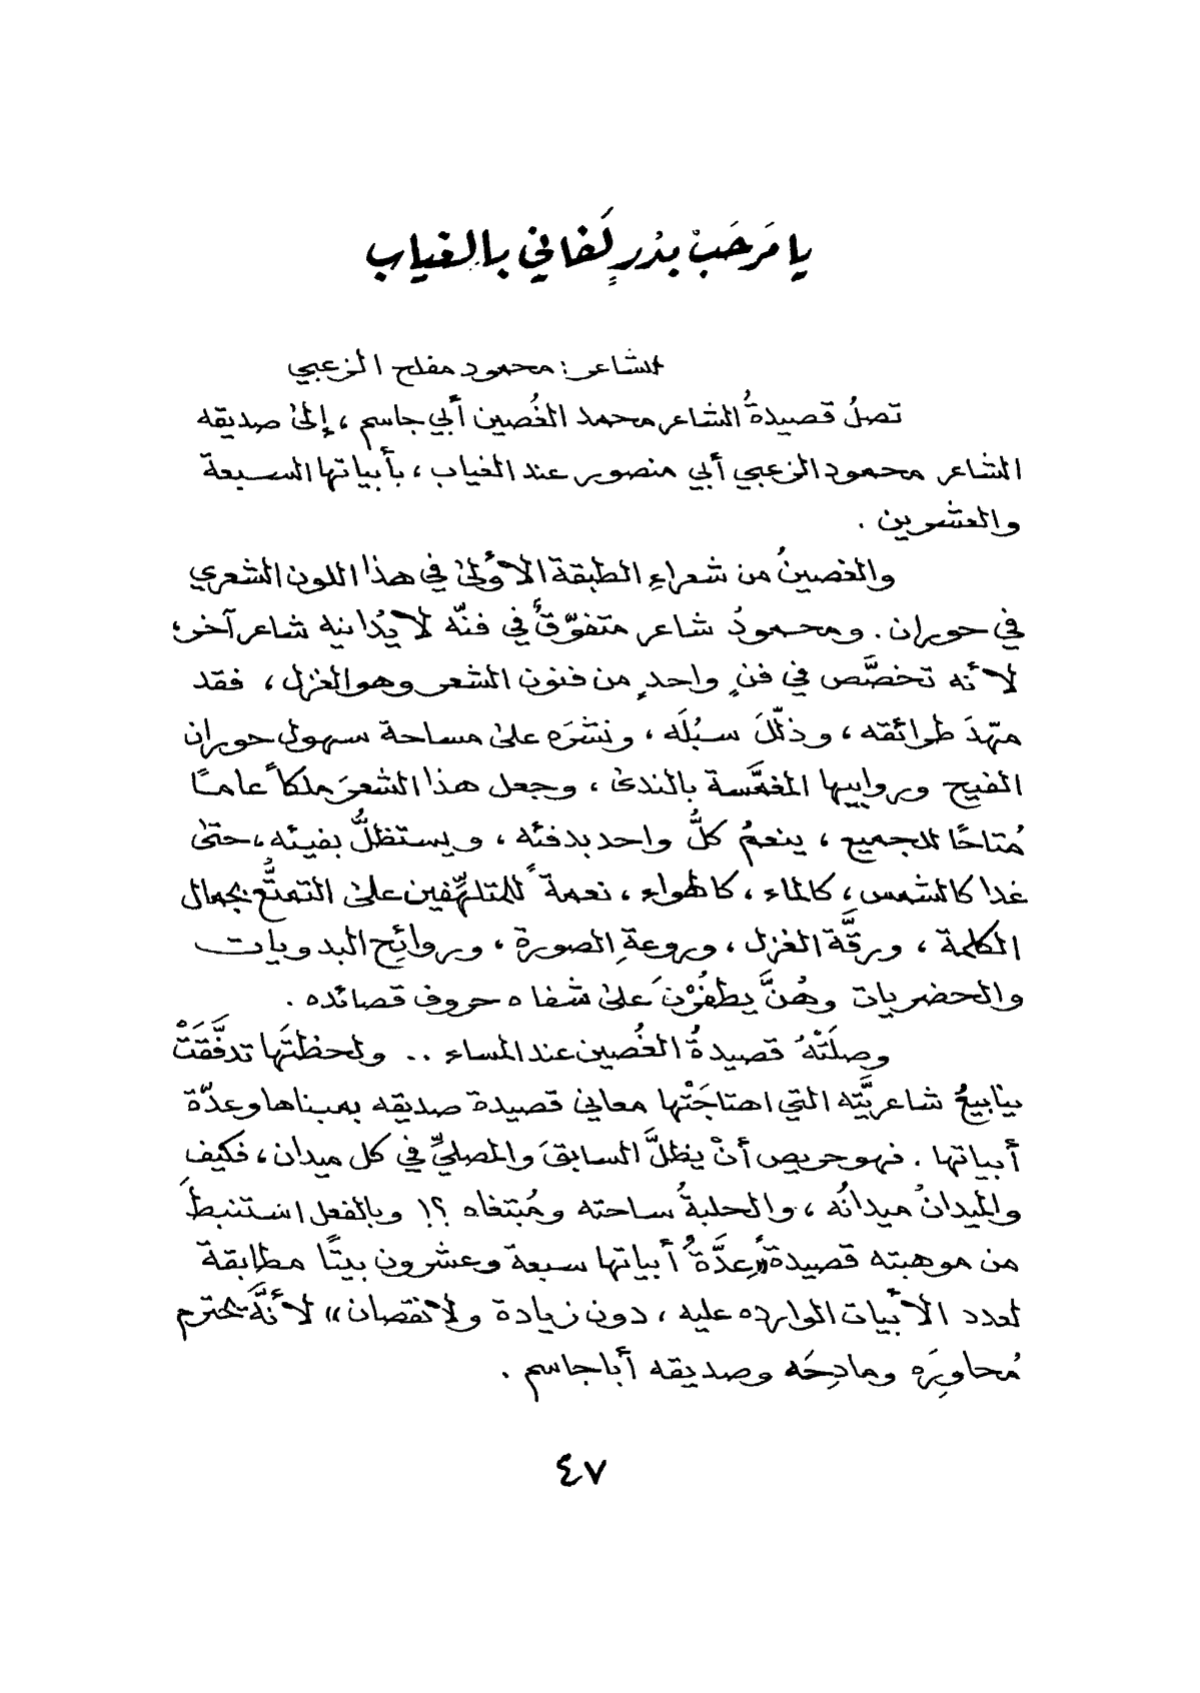 يا مَرحَبْ بدْرٍ لَفاني بالغياب
الشاعر: محمود مفلح الزعبي
تصلُ قصيدةُ الشاعر محمد الغُصين أبي جاسم ، إلى صديقه
الشاعر محمود الزعبي أبي منصور عند الغياب ، بأبياتها السبعة
والعشرين .
والغصينُ من شعراءِ الطبقة الأولى في هذا اللون الشعري
في حوران . ومحمودُ شاعر متفوّقٌ في فنّه لا يُدانيه شاعر آخر ؛
لأنه تخصَّص في فنٍ واحدٍ من فنون الشعر وهو الغزل ، فقد
مهّدَ طرائقه ، وذلّلَ سبُلَه ، ونشَرَه على مساحة سهول حوران
الفيح وروابيها المغمَّسة بالندى ، وجعل هذا الشعرَ ملكاً عامًا
مُتاحًا للجميع ، ينعمُ كلُّ واحد بدفئه ، ويستظلُّ بفيئه ، حتى
غدا كالشمس ، كالماء ، كالهواء ، نعمةً للمتلهِّفين على التمتُّع بجمال
الكلمة ، ورقَّة الغزل ، وروعةِ الصورة ، وروائِح البدويات
والحضريات وهُنَّ يطفُرْنَ على شفاه حروف قصائده .
وصلَتْهُ قصيدةُ الغُصين عند المساء .. ولحظتَها تدفَّقَتْ
ينابيعُ شاعريَّته التي اهتاجَتْها معاني قصيدة صديقه بمبناها وعدّة
أبياتها . فهو حريص أنْ يظلَّ السابقَ والمصلّيَ في كل ميدان ، فكيف
والميدانُ ميدانُه ، والحلبةُ ساحته ومُبتغاه ؟! وبالفعل استنبطَ
من موهبته قصيدةً «عِدَّةُ أبياتها سبعة وعشرون بيتًا مطابقة
لعدد الأبيات الوارده عليه ، دون زيادة ولا نقصان» لأنَّه يحترم
مُحاورَه ومادِحَه وصديقه أبا جاسم .
٤٧